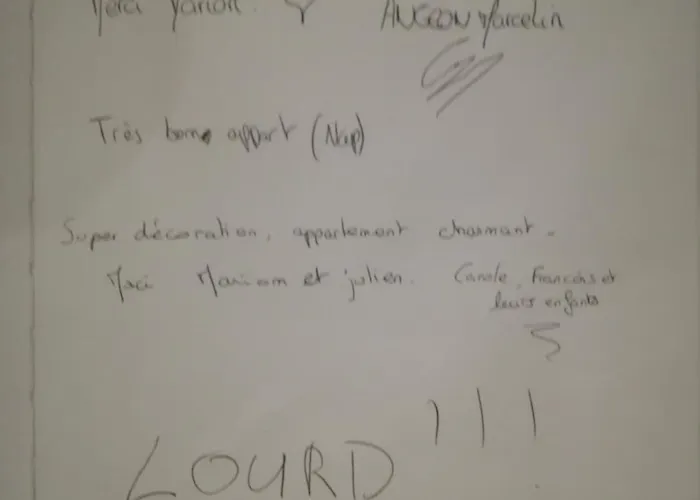 Merci Marion. ANGEON Marcelin
Très bonne appart (Nap)
Super décoration, appartement charmant.
Merci Marion et julien. Carole, Francois et
leurs enfants
LOURD !!!